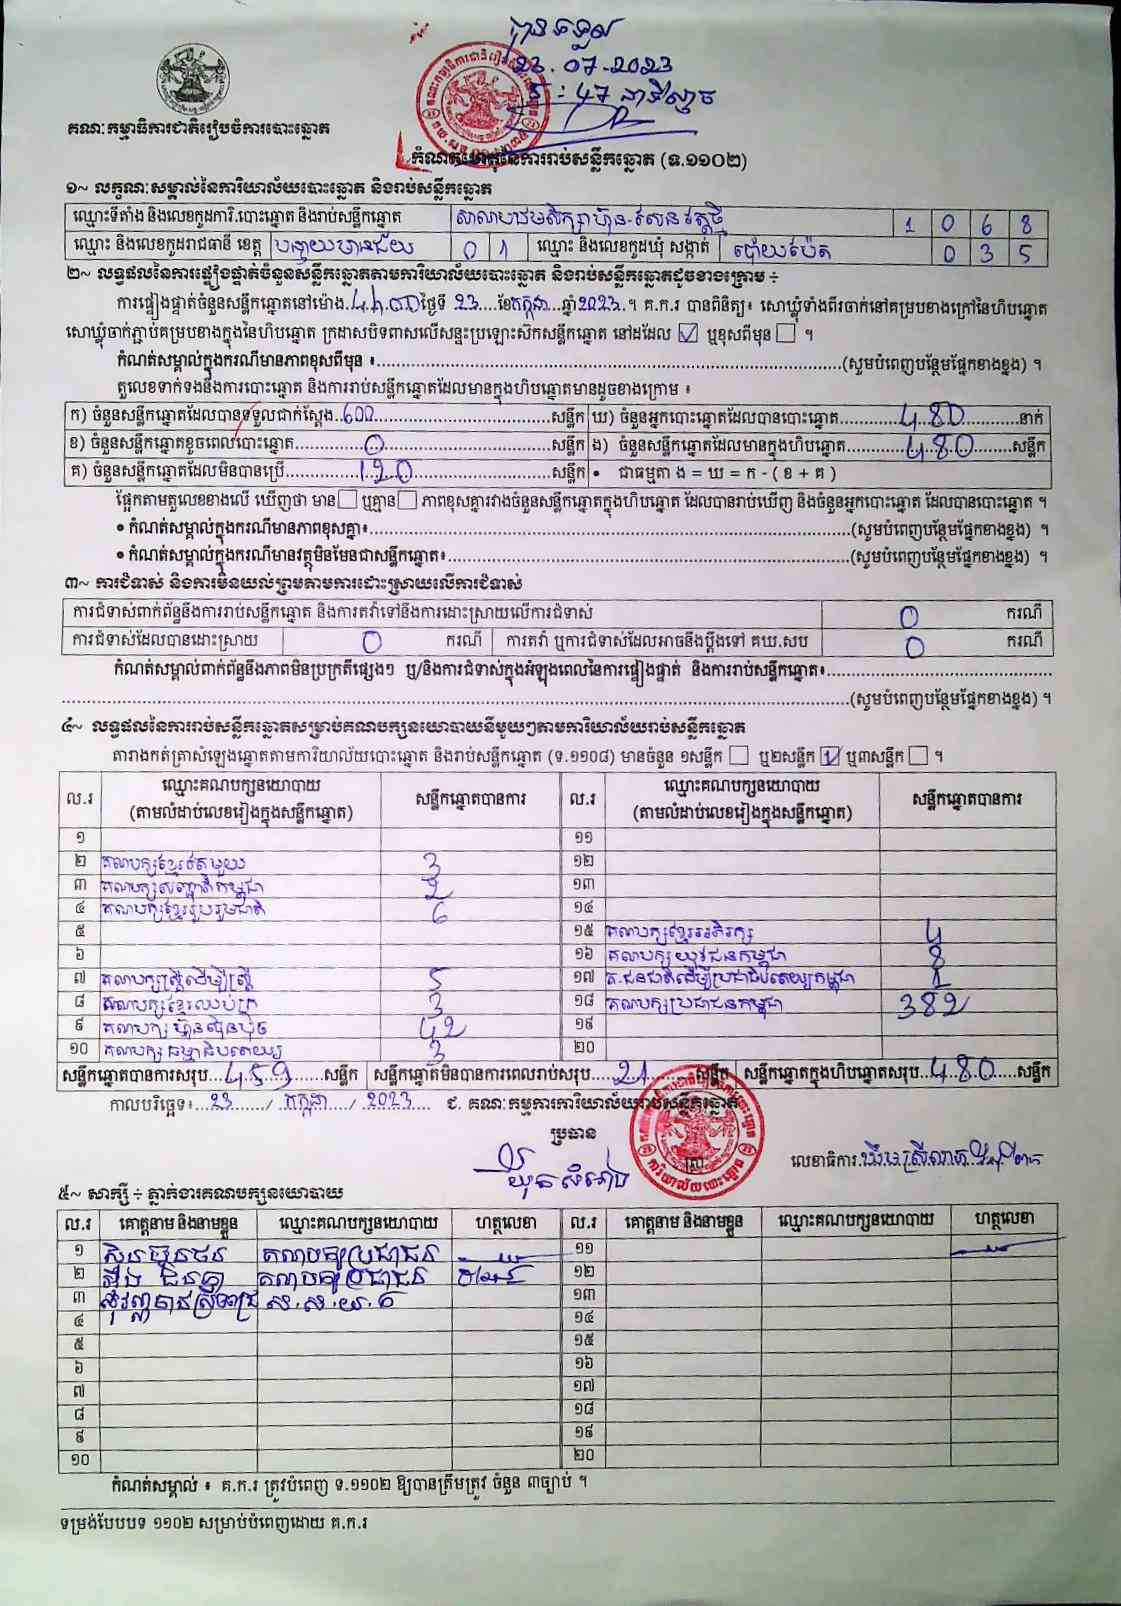 បានទទួល
23.07.2023
5:47 នាទីល្ងាច
គណៈកម្មាធិការជាតិរៀបចំការបោះឆ្នោត
កំណត់ហេតុនៃការរាប់សន្លឹកឆ្នោត (ទ.១១០២)
១~ លក្ខណៈសម្គាល់នៃការិយាល័យបោះឆ្នោត និងរាប់សន្លឹកឆ្នោត
ឈ្មោះទីតាំង និងលេខកូដការិ.បោះឆ្នោត និងរាប់សន្លឹកឆ្នោត សាលាបឋមសិក្សាហ៊ុន-សែនវត្តថ្មី 1 0 6 8
ឈ្មោះ និងលេខកូដរាជធានី ខេត្ត បន្ទាយមានជ័យ 0 1 ឈ្មោះ និងលេខកូដឃុំ សង្កាត់ ប៉ោយប៉ែត 0 3 5
២~ លទ្ធផលនៃការផ្ទៀងផ្ទាត់ចំនួនសន្លឹកឆ្នោតតាមការិយាល័យបោះឆ្នោត និងរាប់សន្លឹកឆ្នោតដូចខាងក្រោម ÷
ការផ្ទៀងផ្ទាត់ចំនួនសន្លឹកឆ្នោតនៅម៉ោង ថ្ងៃទី 23 ខែ កក្កដា ឆ្នាំ 2023 ។ គ.ក.រ បានពិនិត្យ៖ សោឃ្លុំទាំងពីរចាក់នៅគម្របខាងក្រៅនៃហិបឆ្នោត
សោឃ្លុំចាក់ភ្ជាប់គម្របខាងក្នុងនៃហិបឆ្នោត ក្រដាសបិទពាសលើសន្ទះប្រឡោះស៊កសន្លឹកឆ្នោត នៅដដែល ☑ ឬខុសពីមុន ☐ ។
កំណត់សម្គាល់ក្នុងករណីមានភាពខុសពីមុន ៖ (សូមបំពេញបន្ថែមផ្នែកខាងខ្នង) ។
តួលេខទាក់ទងនឹងការបោះឆ្នោត និងការរាប់សន្លឹកឆ្នោតដែលមានក្នុងហិបឆ្នោតមានដូចខាងក្រោម ៖
ក) ចំនួនសន្លឹកឆ្នោតដែលបានទទួលជាក់ស្តែង 600 សន្លឹក ឃ) ចំនួនអ្នកបោះឆ្នោតដែលបានបោះឆ្នោត 480 នាក់
ខ) ចំនួនសន្លឹកឆ្នោតខូចពេលបោះឆ្នោត 0 សន្លឹក ង) ចំនួនសន្លឹកឆ្នោតដែលមានក្នុងហិបឆ្នោត 480 សន្លឹក
គ) ចំនួនសន្លឹកឆ្នោតដែលមិនបានប្រើ 120 សន្លឹក • ជាធម្មតា ង = ឃ = ក - ( ខ + គ )
ផ្អែកតាមតួលេខខាងលើ ឃើញថា មាន ☐ ឬគ្មាន ☐ ភាពខុសគ្នារវាងចំនួនសន្លឹកឆ្នោតក្នុងហិបឆ្នោត ដែលបានរាប់ឃើញ និងចំនួនអ្នកបោះឆ្នោត ដែលបានបោះឆ្នោត ។
• កំណត់សម្គាល់ក្នុងករណីមានភាពខុសគ្នា៖ (សូមបំពេញបន្ថែមផ្នែកខាងខ្នង) ។
• កំណត់សម្គាល់ក្នុងករណីមានវត្ថុមិនមែនជាសន្លឹកឆ្នោត៖ (សូមបំពេញបន្ថែមផ្នែកខាងខ្នង) ។
៣~ ការជំទាស់ និងការមិនយល់ព្រមតាមការដោះស្រាយលើការជំទាស់
ការជំទាស់ពាក់ព័ន្ធនឹងការរាប់សន្លឹកឆ្នោត និងការតវ៉ាទៅនឹងការដោះស្រាយលើការជំទាស់ 0 ករណី
ការជំទាស់ដែលបានដោះស្រាយ 0 ករណី ការតវ៉ា ឬការជំទាស់ដែលអាចនឹងប្តឹងទៅ គឃ.សប 0 ករណី
កំណត់សម្គាល់ពាក់ព័ន្ធនឹងភាពមិនប្រក្រតីផ្សេងៗ ឬ/និងការជំទាស់ក្នុងអំឡុងពេលនៃការផ្ទៀងផ្ទាត់ និងការរាប់សន្លឹកឆ្នោត៖
(សូមបំពេញបន្ថែមផ្នែកខាងខ្នង) ។
៤~ លទ្ធផលនៃការរាប់សន្លឹកឆ្នោតសម្រាប់គណបក្សនយោបាយនីមួយៗតាមការិយាល័យរាប់សន្លឹកឆ្នោត
តារាងកត់ត្រាសំឡេងឆ្នោតតាមការិយាល័យបោះឆ្នោត និងរាប់សន្លឹកឆ្នោត (ទ.១១០៨) មានចំនួន ១សន្លឹក ☐ ឬ២សន្លឹក ☑ ឬ៣សន្លឹក ☐ ។
ល.រ ឈ្មោះគណបក្សនយោបាយ (តាមលំដាប់លេខរៀងក្នុងសន្លឹកឆ្នោត) សន្លឹកឆ្នោតបានការ ល.រ ឈ្មោះគណបក្សនយោបាយ (តាមលំដាប់លេខរៀងក្នុងសន្លឹកឆ្នោត) សន្លឹកឆ្នោតបានការ
១ ១១
២ គណបក្សខ្មែរតែមួយ 3 ១២
៣ គណបក្សសញ្ជាតិកម្ពុជា 2 ១៣
៤ គណបក្សខ្មែររួបរួមជាតិ 6 ១៤
៥ ១៥ គណបក្សខ្មែរអភិរក្ស 4
៦ ១៦ គណបក្សយុវជនកម្ពុជា 8
៧ គណបក្សស្ត្រីដើម្បីស្ត្រី 5 ១៧ គ.ជនជាតិដើម្បីប្រជាធិបតេយ្យកម្ពុជា 1
៨ គណបក្សខ្មែរឈប់ក្រ 3 ១៨ គណបក្សប្រជាជនកម្ពុជា 382
៩ គណបក្សហ្វ៊ុនស៊ិនប៉ិច 42 ១៩
១០ គណបក្សធម្មាធិបតេយ្យ 3 ២០
សន្លឹកឆ្នោតបានការសរុប 459 សន្លឹក សន្លឹកឆ្នោតមិនបានការពេលរាប់សរុប 21 សន្លឹក សន្លឹកឆ្នោតក្នុងហិបឆ្នោតសរុប 480 សន្លឹក
កាលបរិច្ឆេទ៖ 23 / កក្កដា / 2023 ជ. គណៈកម្មការការិយាល័យរាប់សន្លឹកឆ្នោត
ប្រធាន
លេខាធិការ
៥~ សាក្សី ÷ ភ្នាក់ងារគណបក្សនយោបាយ
ល.រ គោត្តនាម និងនាមខ្លួន ឈ្មោះគណបក្សនយោបាយ ហត្ថលេខា ល.រ គោត្តនាម និងនាមខ្លួន ឈ្មោះគណបក្សនយោបាយ ហត្ថលេខា
១ គណបក្សប្រជាជន ១១
២ គណបក្សប្រជាជន ១២
៣ ស.ស.យ.ក ១៣
៤ ១៤
៥ ១៥
៦ ១៦
៧ ១៧
៨ ១៨
៩ ១៩
១០ ២០
កំណត់សម្គាល់ ៖ គ.ក.រ ត្រូវបំពេញ ទ.១១០២ ឱ្យបានត្រឹមត្រូវ ចំនួន ៣ច្បាប់ ។
ទម្រង់បែបបទ ១១០២ សម្រាប់បំពេញដោយ គ.ក.រ